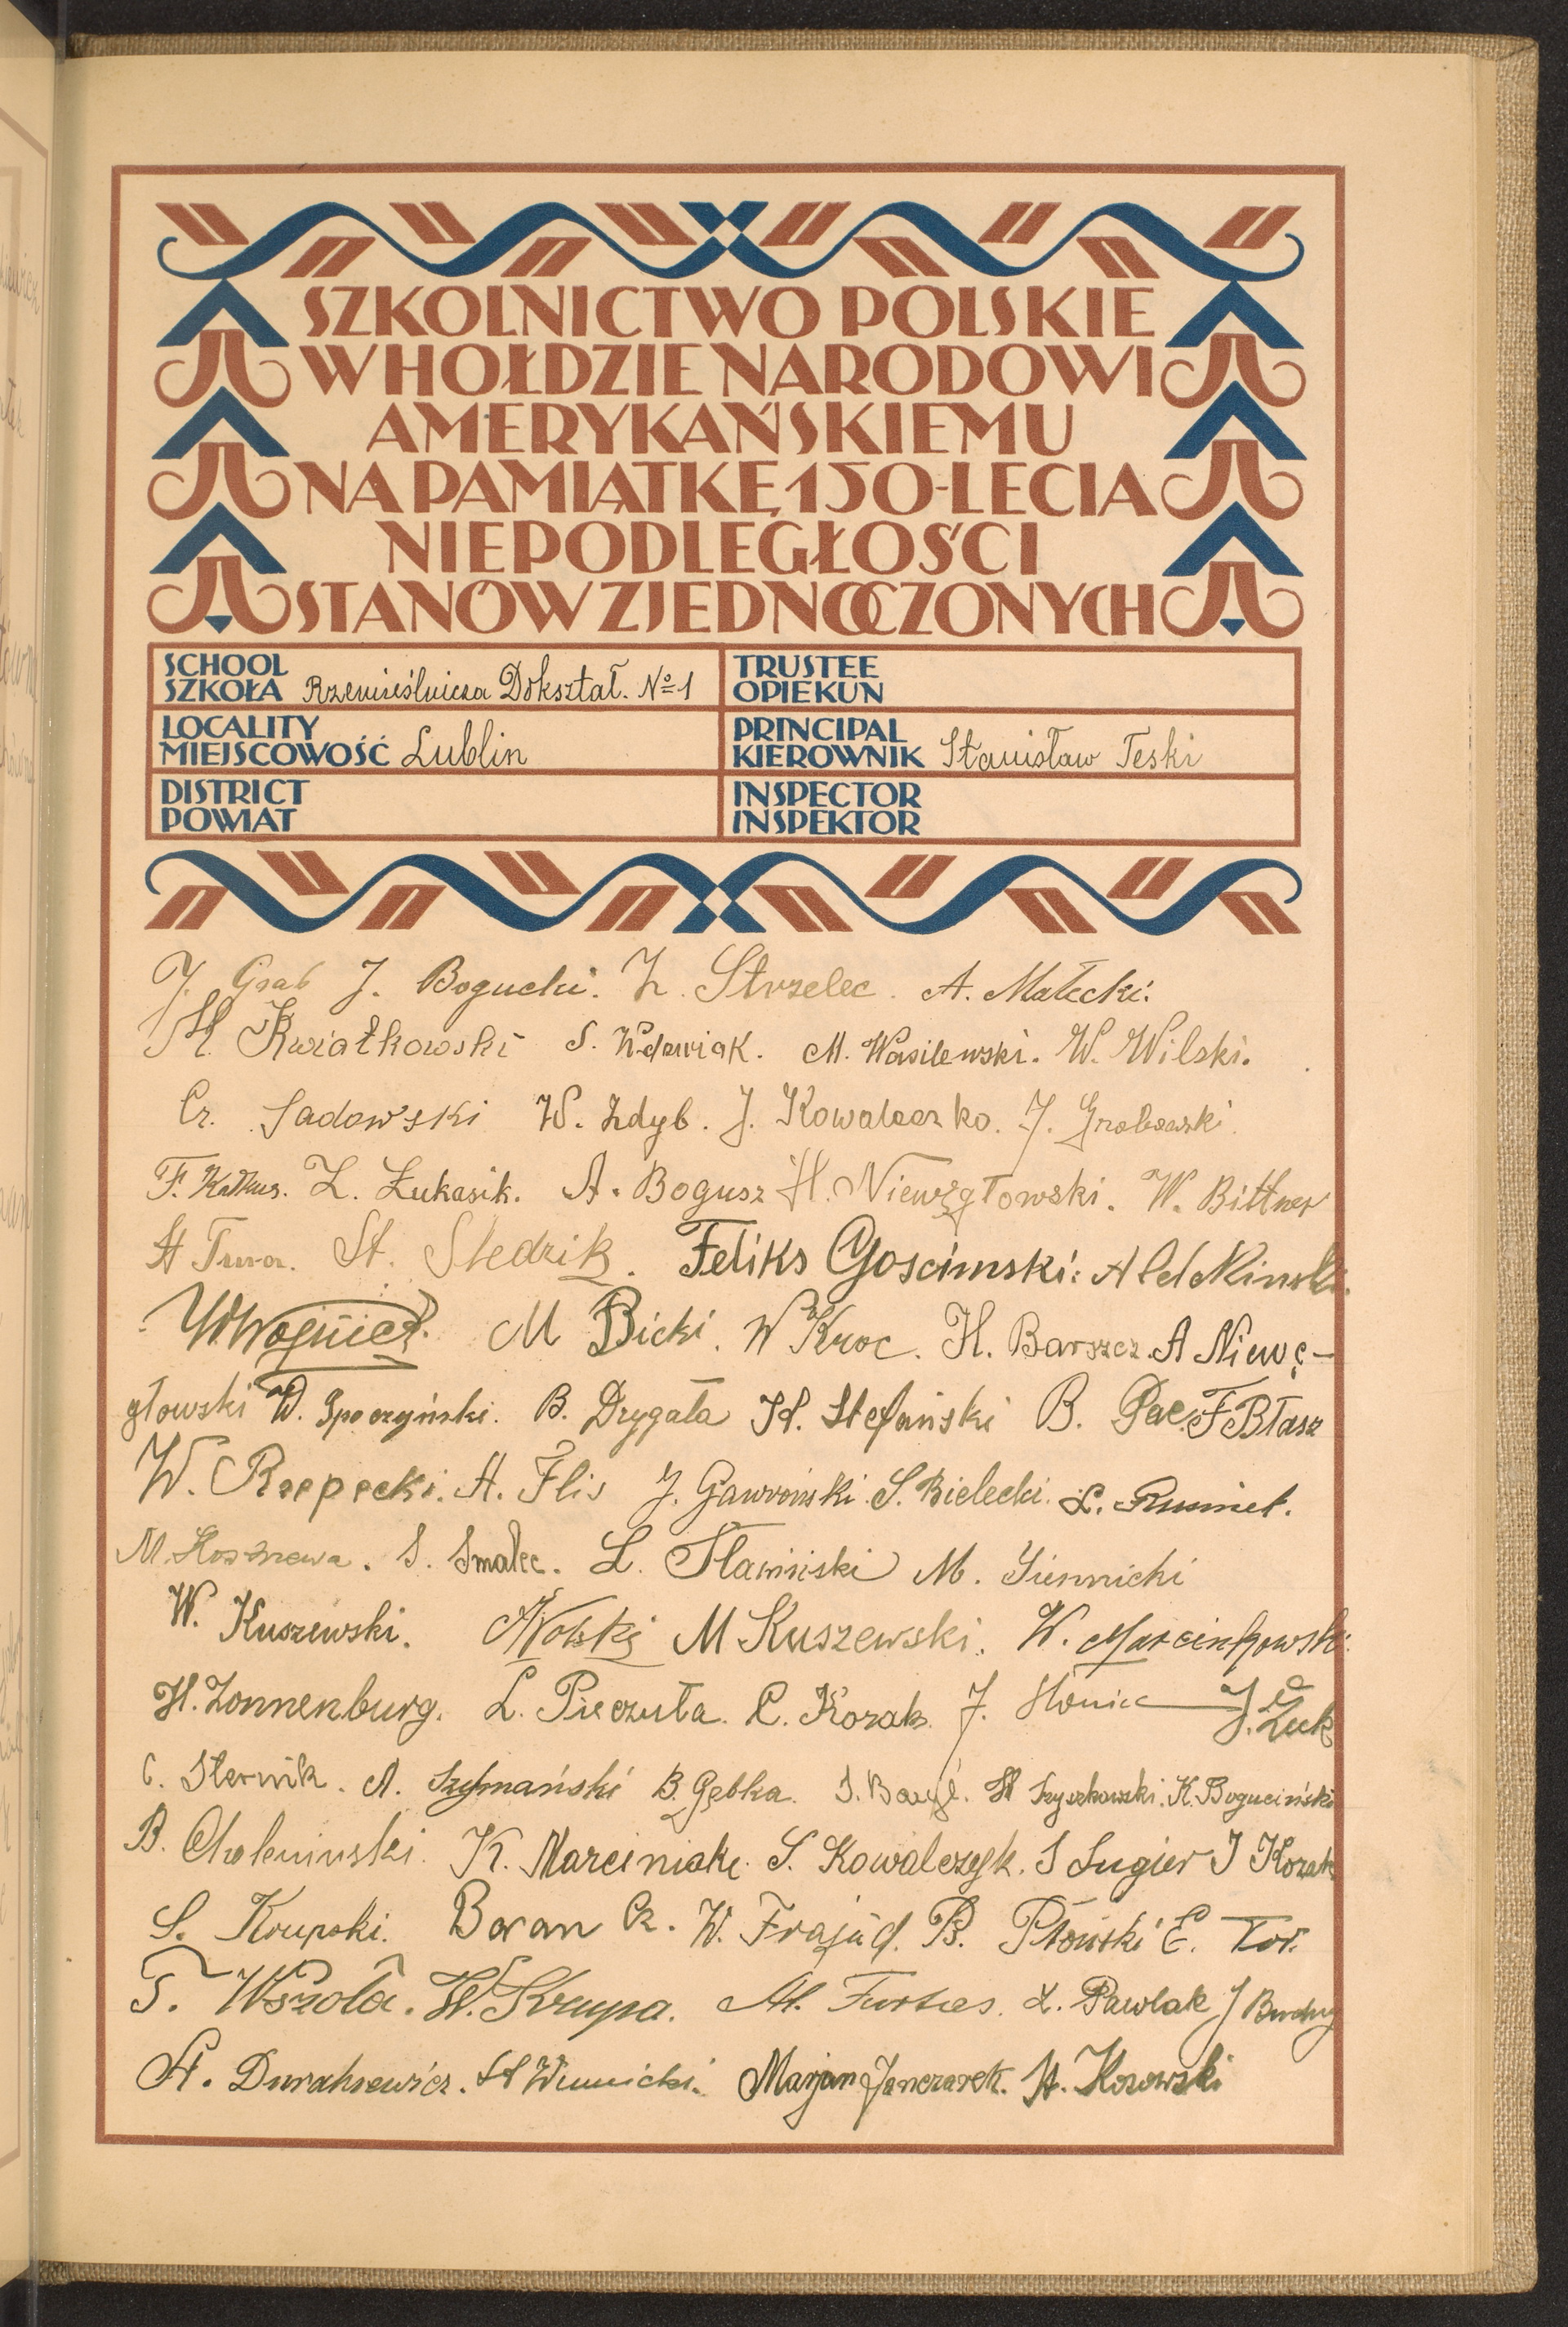 SZKOLNICTWO POLSKIE
W HOŁDZIE NARODOWI
AMERYKAŃSKIEMU
NA PAMIĄTKĘ 150-LECIA
NIEPODLEGŁOŚCI
STANÓW ZJEDNOCZONYCH
SCHOOL
SZKOŁA Rzemieślnicza Dokształ. No 1
TRUSTEE
OPIEKUN
LOCALITY
MIEJSCOWOŚĆ Lublin
PRINCIPAL
KIEROWNIK Stanisław Teski
DISTRICT
POWIAT
INSPECTOR
INSPEKTOR
J. Grab J. Bogucki. Z. Strzelec. A. Małecki.
Kwiatkowski S. Wdowiak. M. Wasilewski. W. Wilski.
Cz. Sadowski W. Zdyb. J. Kowalczko. J. Grabowski.
F. Z. Łukasik. A. Bogusz H. Niewęgłowski. W. Bittner
St. Śledzik. Feliks Gościmski:
M Bicki. W Kroc. H. Barszcz. A Niewę-
głowski W. Spoczyński. B. Drygała St. Stefański B. Pac. F Błasz
W. Rzepecki. A. Flis J. Gawroński. S. Bielecki. L.
M. S. Smalec. L. Sławiński M.
W. Kuszewski. M Kuszewski. W. Marcinkowski.
H. Zonnenburg. L. Pieczuła. C. Kozak. J. Słonicz J. Żuk
C. Sternik. A. Szymański B. Gębka. S. St Fryszkowski. K. Boguciński
B. K. Marciniak. S. Kowalczyk. S Sugier J Kozak
S. Krupski. Baran Cz. W. Frajud. B. Płoński E. Tor.
T. Wszoła. W. Skrupa. L. Pawlak J
St. St Winnicki. Marjan Janczarek. A. Kosowski